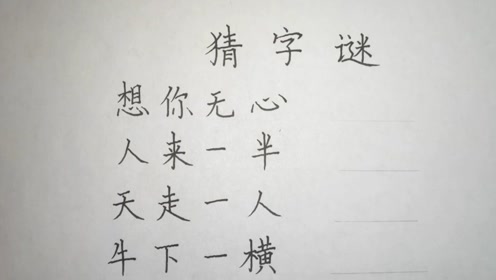 猜字谜
想你无心
人来一半
天走一人
牛下一横